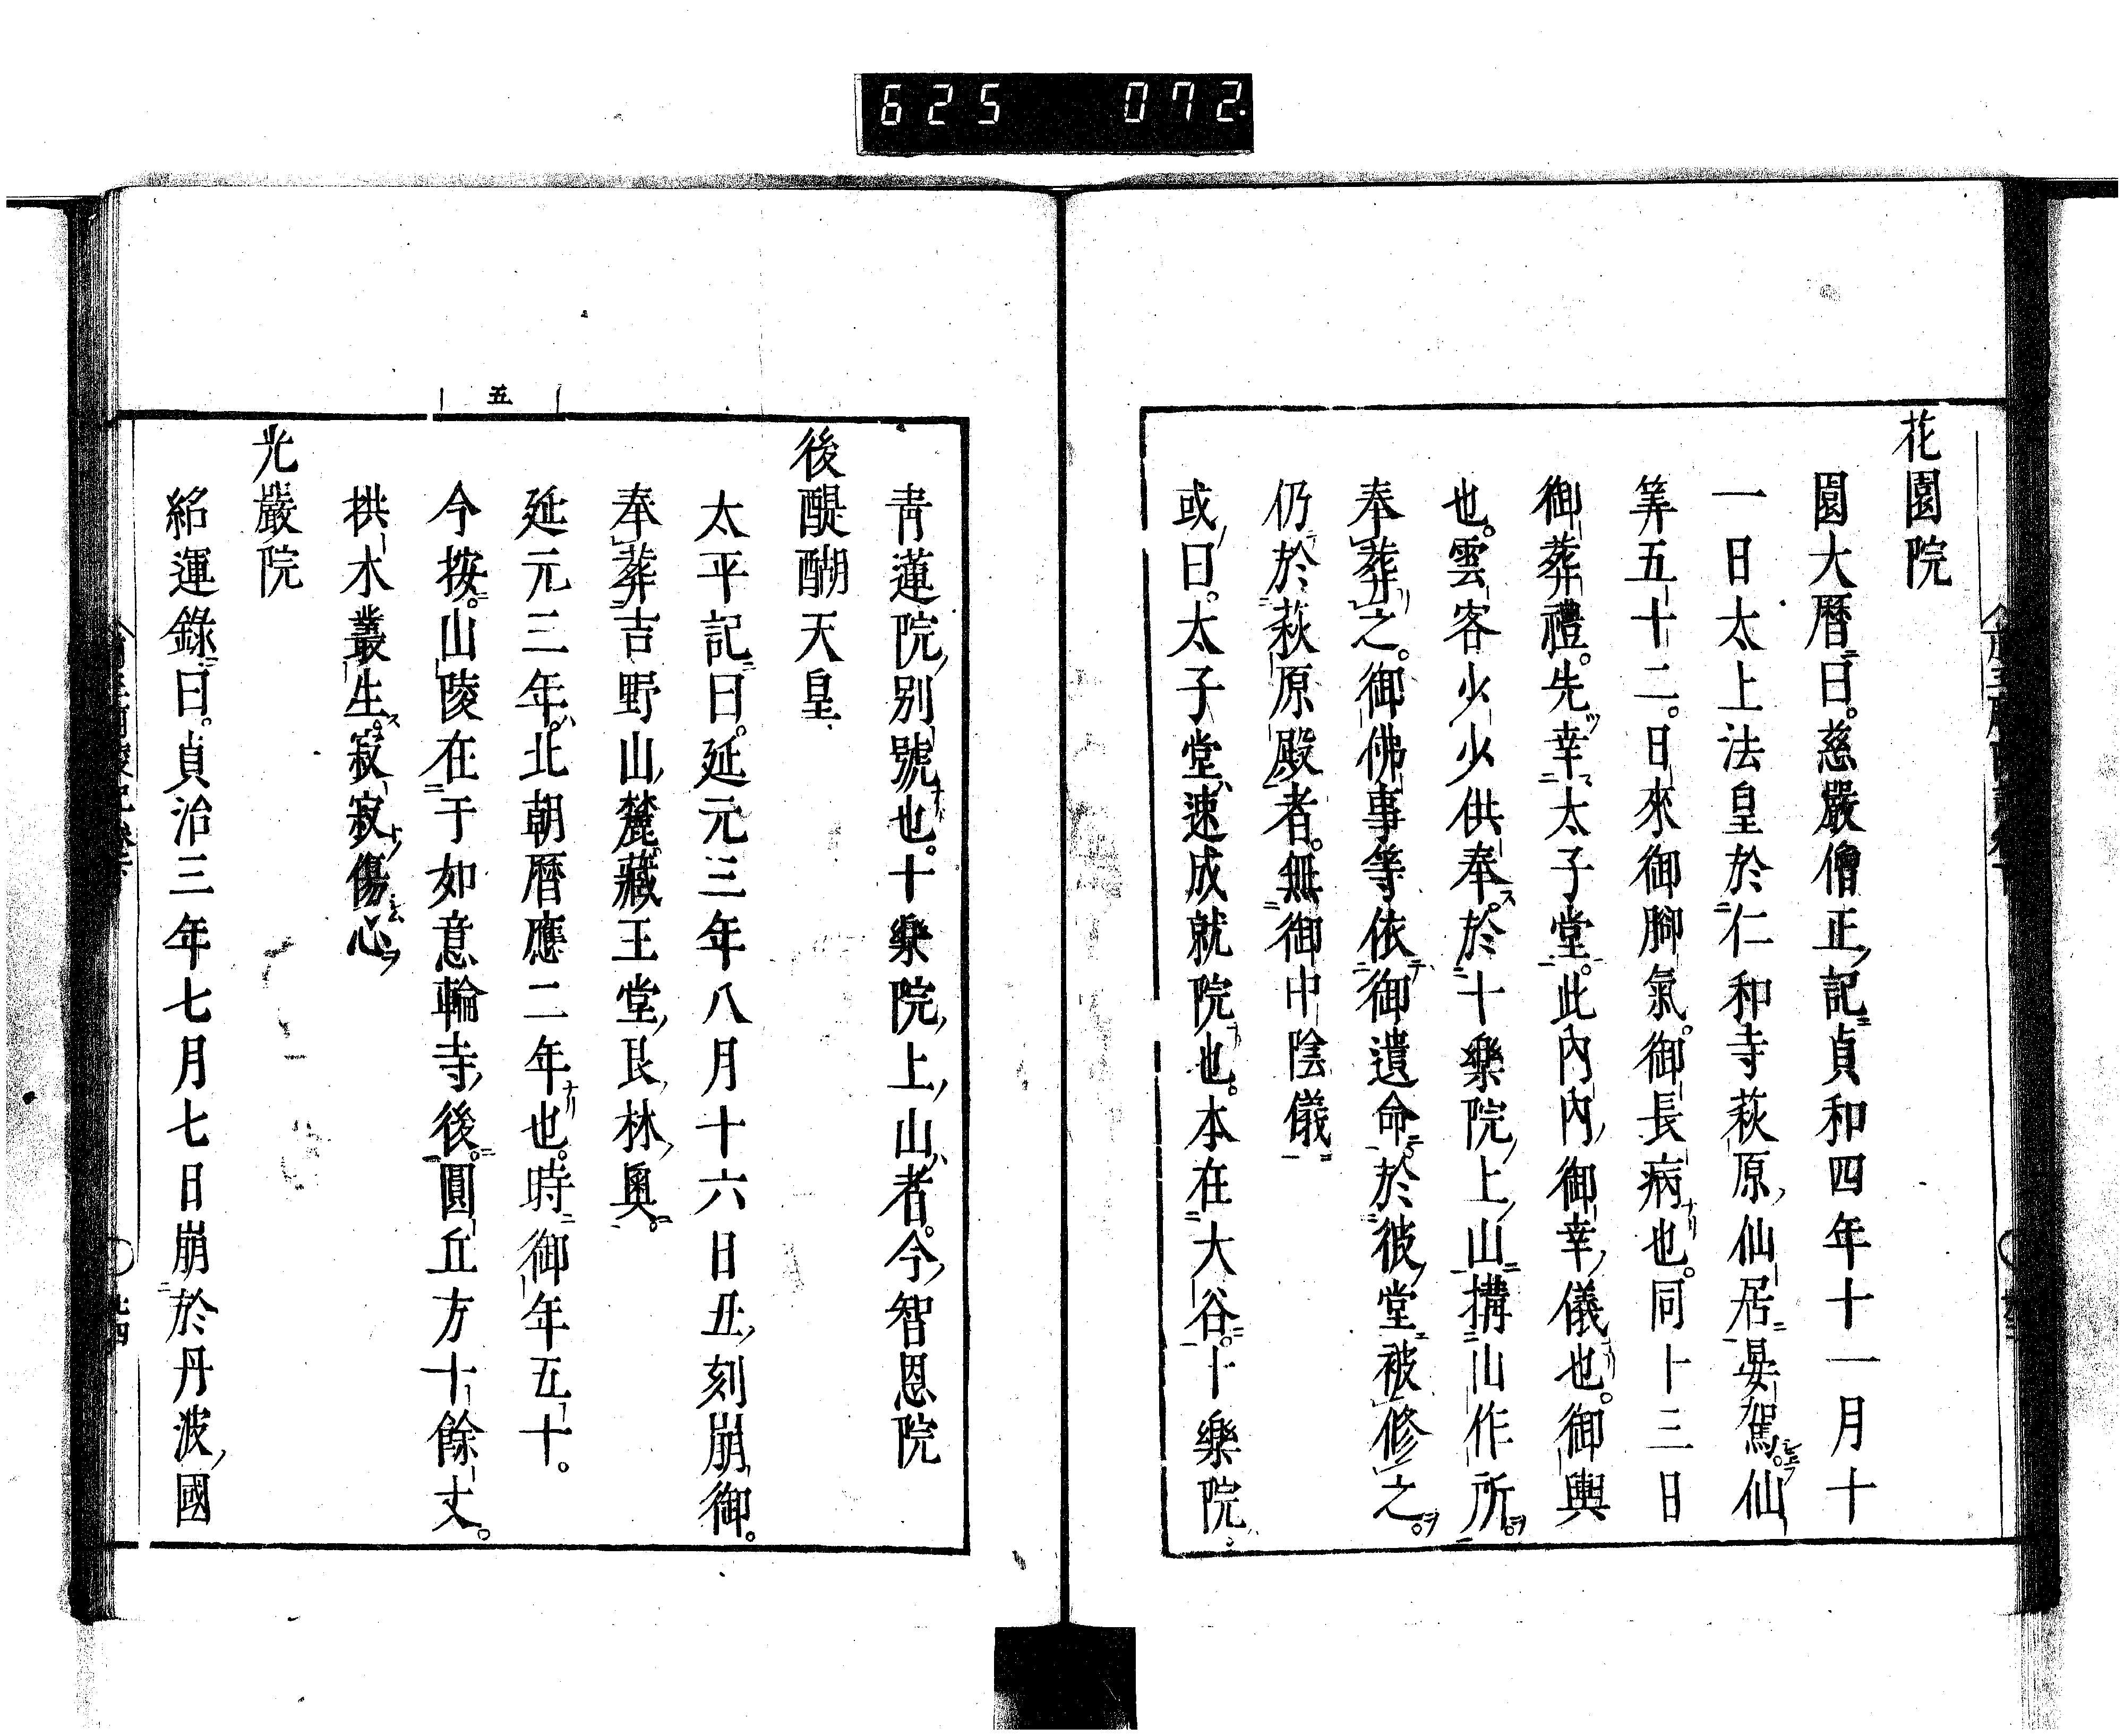 625 072.
花園院
園大曆曰。慈嚴僧正記貞和四年十一月十
一日太上法皇於仁和寺萩原仙居晏駕。仙
筭五十二。日來御腳氣。御長病也。同十三日
御葬禮。先幸太子堂。此內內御幸儀也。御輿
也。雲客少少供奉。於十樂院上山構山作所。
奉葬之。御佛事等依御遺命於彼堂被修之。
仍於萩原殿者。無御中陰儀
或曰。太子堂速成就院也。本在大谷。十樂院
青蓮院別號也。十樂院上山者。今智恩院
後醍醐天皇
太平記曰。延元三年八月十六日丑刻崩御。
奉葬吉野山麓藏王堂艮林奧。
延元三年。北朝曆應二年也。時御年五十。
今按。山陵在于如意輪寺後。圓丘方十餘丈。
拱木叢生。寂寂傷心
光嚴院
紹運錄曰。貞治三年七月七日崩於丹波國
五